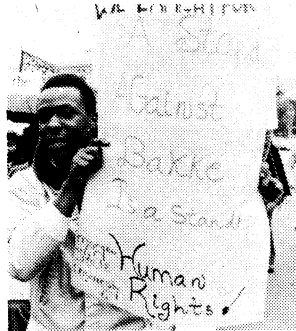 A Stand
Against
Bakke
Is a Stand
Human
Rights!